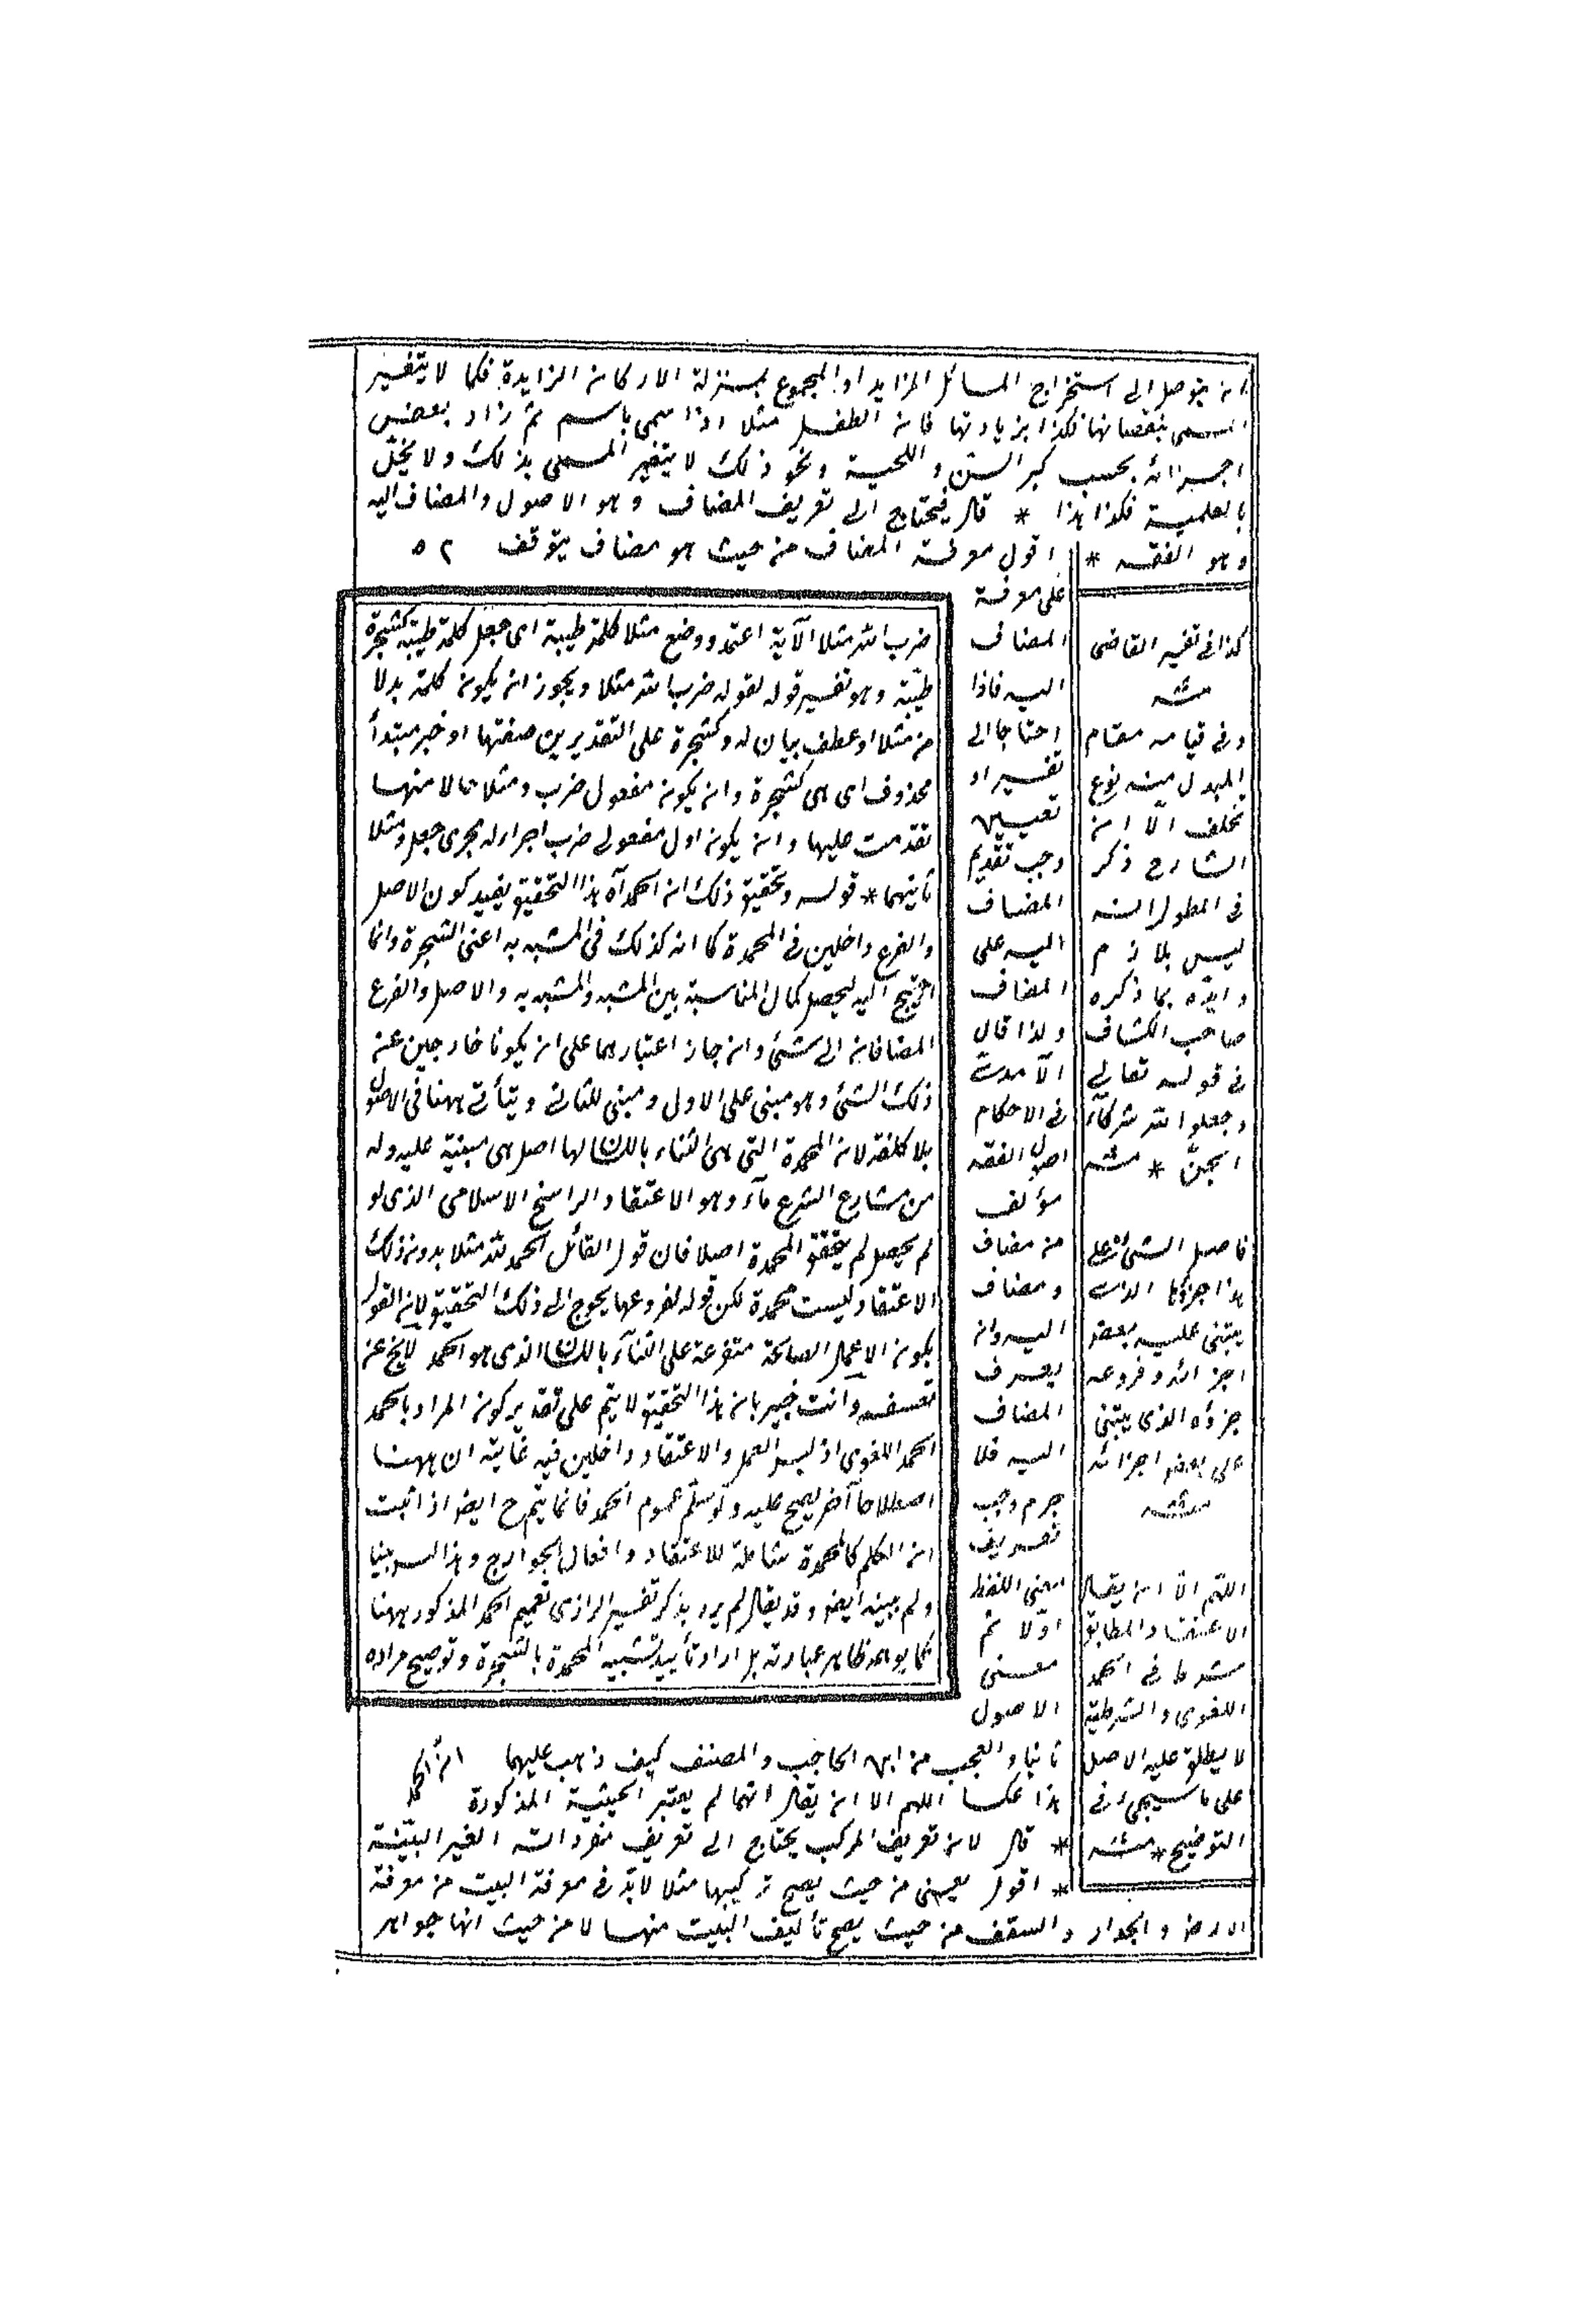 ان يتوصل الى استخراج المسائل المزايد او المجموع بمنزلة الاركان الزايدة فكما لا يتغير
المسمى بنقصانها فكذا بزيادتها فان الطفل مثلا اذا سمى باسم ثم زاد بعض
اجزائه بحسب كبر السن و اللحية ونحو ذلك لا يتغير المسمى بذلك ولا يخلّ
بالعلمية فكذا هذا * قال فيحتاج الى تعريف المضاف وهو الاصول والمضاف اليه
وهو الفقه * اقول معرفة المضاف من حيث هو مضاف يتوقف ٥٢
على معرفة
المضاف
اليه فاذا
احتاجا الى
تفسير او
تعيين
وجب تقديم
المضاف
اليه على
المضاف
ولذا قال
الآمدى
فى الاحكام
اصول الفقه
مؤلف
من مضاف
ومضاف
اليه وان
يعرف
المضاف
اليه فلا
جرم وجب
تعريف
معنى اللفظ
اولا ثم
معنى
الاصول
ثانيا والعجب من ابن الحاجب والمصنف كيف ذهب عليهما
هذا عكسا اللهم الا ان يقال انهما لم يعتبر الحيثية المذكورة
* قال لان تعريف المركب يحتاج الى تعريف مفرداته الغير البيّنة
* اقول يعنى من حيث يصح تركيبها مثلا لابدّ فى معرفة البيت من معرفة
الارض والجدار والسقف من حيث يصح تأليف البيت منها لا من حيث انها جواهر
ضرب الله مثلا الآية اعتمد ووضع مثلا كلمة طيبة اى جعل كلمة طيبة كشجرة
طيّبة وهو تفسير قوله لقوله ضرب الله مثلا ويجوز ان يكون كلمة بدلا
من مثلا او عطف بيان له وكشجرة على التقديرين صفتها او خبر مبتدأ
محذوف اى هى كشجرة وان يكون مفعول ضرب ومثلا حالا منها
تقدمت عليها وان يكون اول مفعولى ضرب اجراء له مجرى جعل ومثلا
ثانيهما * قوله وتحقيق ذلك ان الحمد آه هذا التحقيق يفيد كون الاصل
والفرع داخلين فى المحمدة كما انه كذلك فى المشبه به اعنى الشجرة وانما
احتيج اليه ليحصل كمال المناسبة بين المشبه والمشبه به والاصل والفرع
المضافان الى شئ وان جاز اعتبارهما على ان يكونا خارجين عن
ذلك الشئ وهو مبنى على الاول ومبنى للثانى ويتأتى ههنا فى الاصول
بلا كلفة لان المحمدة التى هى الثناء باللسان لها اصل هى مبنية عليه وله
من مشارع الشرع ماء وهو الاعتقاد الراسخ الاسلامى الذى لو
لم يحصل لم يتحقق المحمدة اصلا فان قول القائل الحمد لله مثلا بدون ذلك
الاعتقاد ليست محمدة لكن قوله لفروعها يحوج الى ذلك التحقيق لان القول
بكون الاعمال الصالحة متفرعة على الثناء باللسان الذى هو الحمد لا يخ عن
تعسف وانت خبير بان هذا التحقيق لا يتم على تقدير كون المراد بالحمد
الحمد اللغوى اذ ليس العمل والاعتقاد داخلين فيه غايته ان ههنا
اصطلاحا آخر يصح عليه ولو سلّم عموم الحمد فانما يتم ح ايضا اذا ثبت
ان الكلم كالمحمدة شاملة للاعتقاد وافعال الجوارح وهذا ليس بينا
ولم يبينه ايضا وقد يقال لم يرد بذكر تفسير الرازى تعميم الحمد المذكور ههنا
كما يوهمه ظاهر عبارته بل اراد تأييد تشبيه المحمدة بالشجرة وتوضيح مراده
ان الحمد
كذا فى تفسير القاضى
منه
وفى قيامه مقام
المبدل منه نوع
تخلف الا ان
الشارح ذكر
فى المطول انه
ليس بلازم
وايّده بما ذكره
صاحب الكشاف
فى قوله تعالى
وجعلوا لله شركاء
الجنّ * منه
فاصل الشئ على
هذا جزؤه الذى
يبتنى عليه بعض
اجزائه وفروعه
جزؤه الذى يبتنى
على بعض اجزائه
منه
اللهم الا ان يقال
الاعتقاد المطابق
شرط فى الحمد
اللغوى والشرطية
لا يطلق عليه الاصل
على ما سيجئ فى
التوضيح * منه